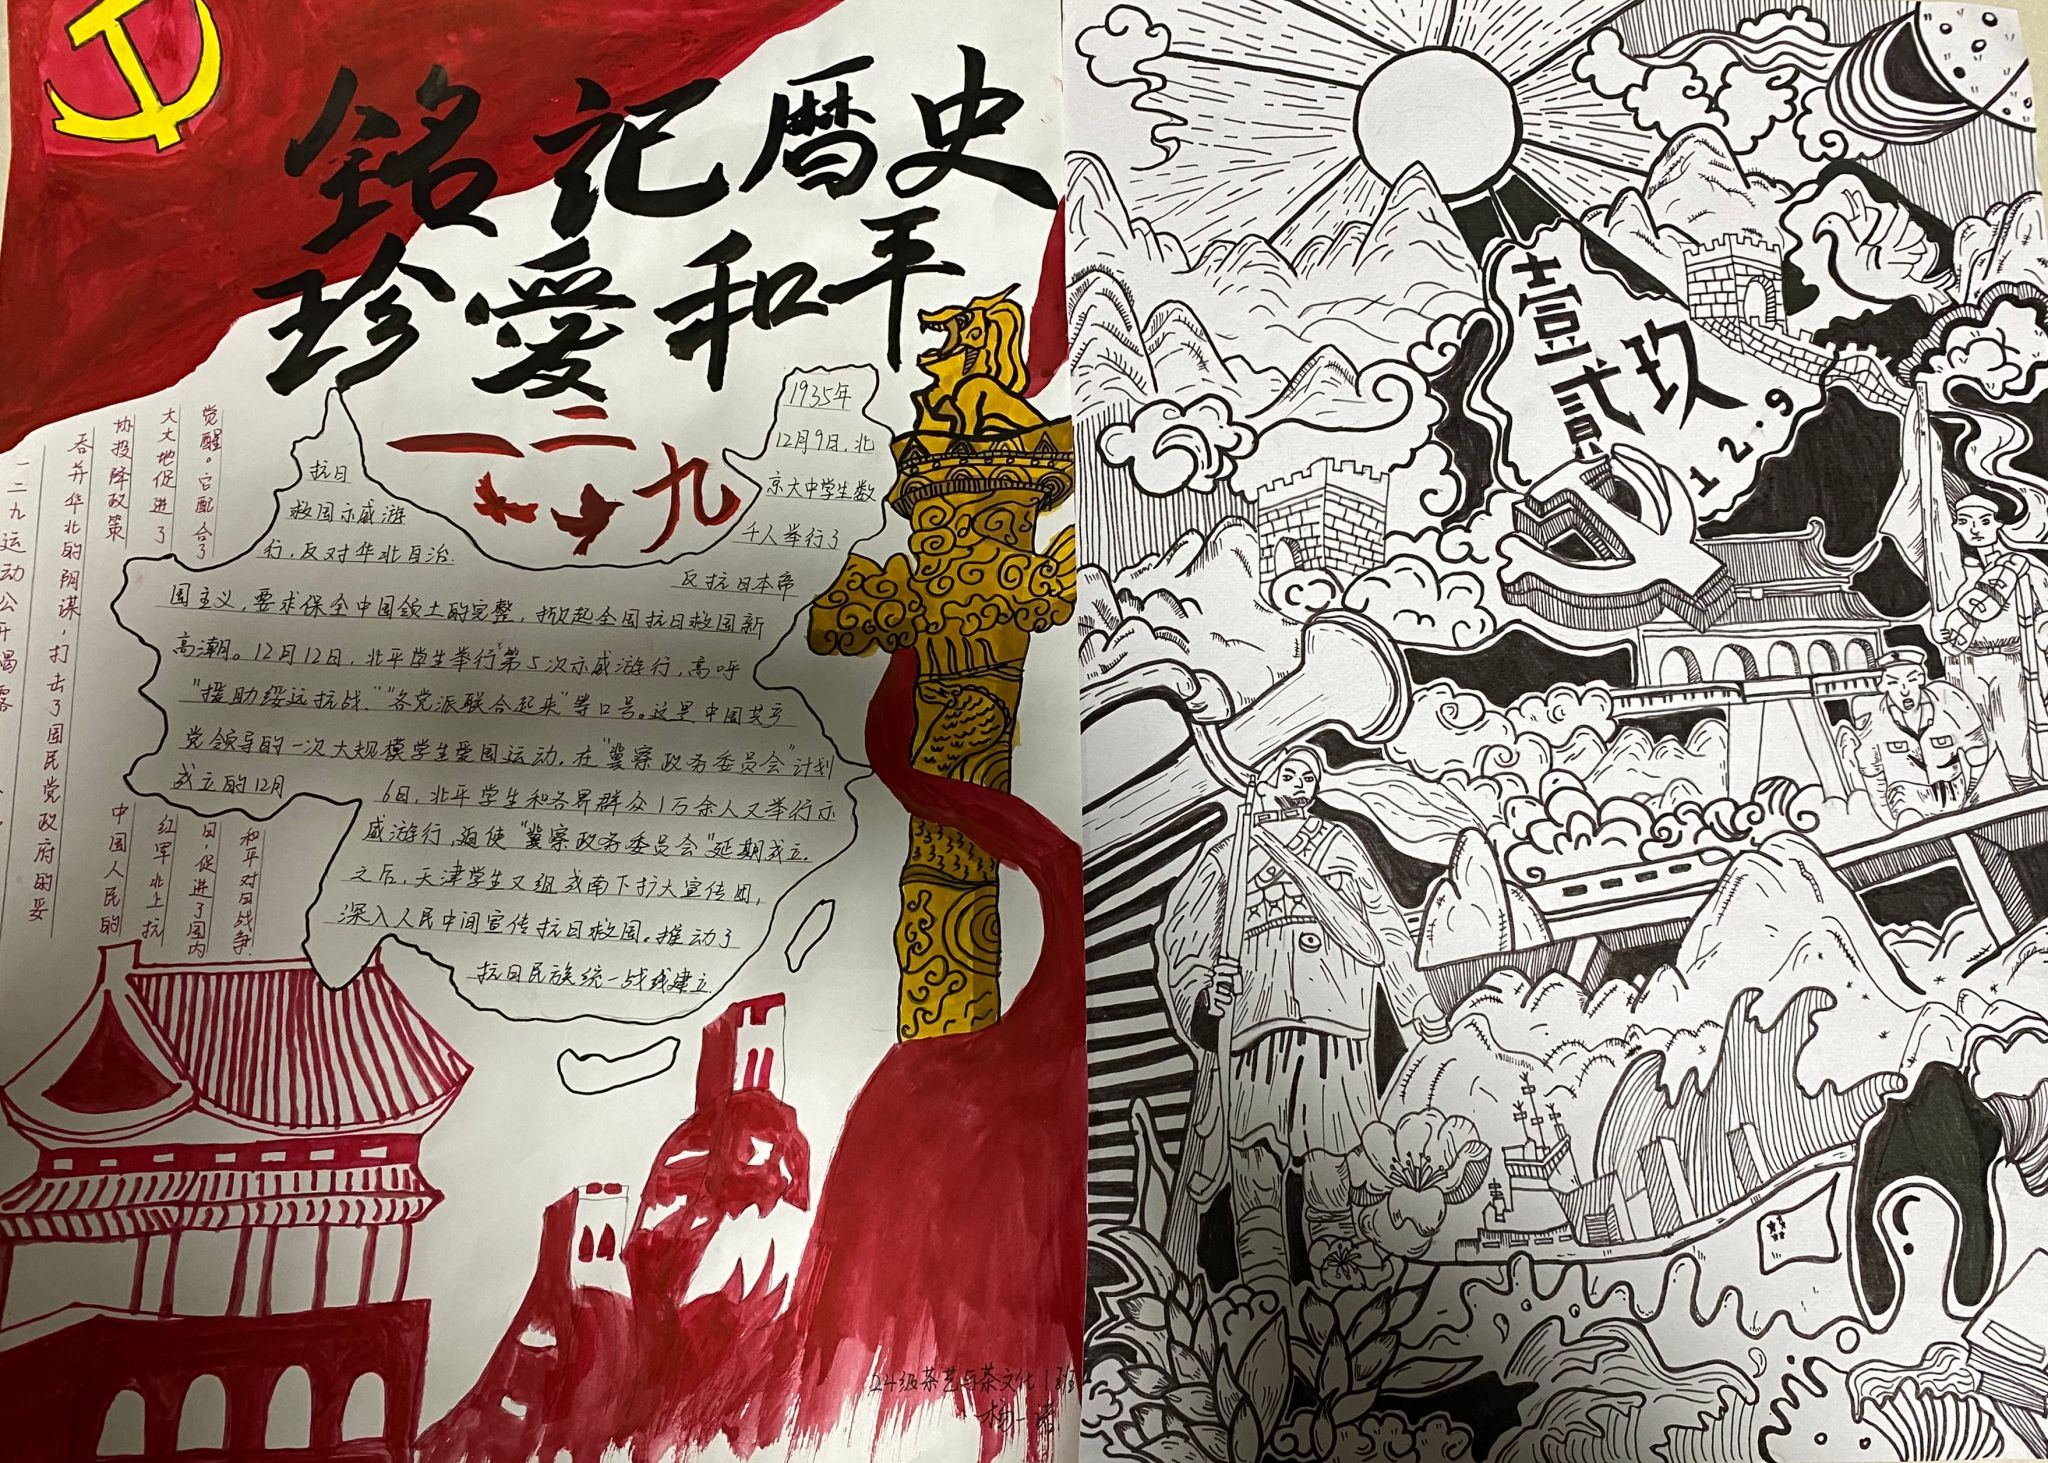 銘记曆史
珍愛和平
一二九
1935年
12月9日,北
京大中学生数
千人举行了
反抗日本帝
抗日
救国示威游
行,反对华北自治.
国主义,要求保全中国领土的完整,掀起全国抗日救国新
高潮。12月12日,北平学生举行第5次示威游行,高呼
"援助绥远抗战.""各党派联合起来"等口号。这里中国共产
党领导的一次大规模学生爱国运动.在"冀察政务委员会"计划
成立的12月
6日,北平学生和各界群众1万余人又举行示
威游行,迫使"冀察政务委员会"延期成立.
之后,天津学生又组成南下扩大宣传团,
深入人民中间宣传抗日救国。推动了
抗日民族统一战线建立.
一二九运动公开揭露
吞并华北的阴谋,打击了国民党政府的妥
协投降政策
大大地促进了
中国人民的
觉醒。它配合了
红军北上抗
日,促进了国内
和平对日战争.
24级茶艺与茶文化1班
杨一诺
壹贰玖
12.9